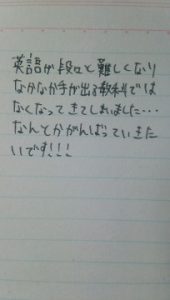 英語が段々と難しくなり
なかなか手が出る教科では
なくなってきてしまいました…
なんとかがんばっていきた
いです!!!